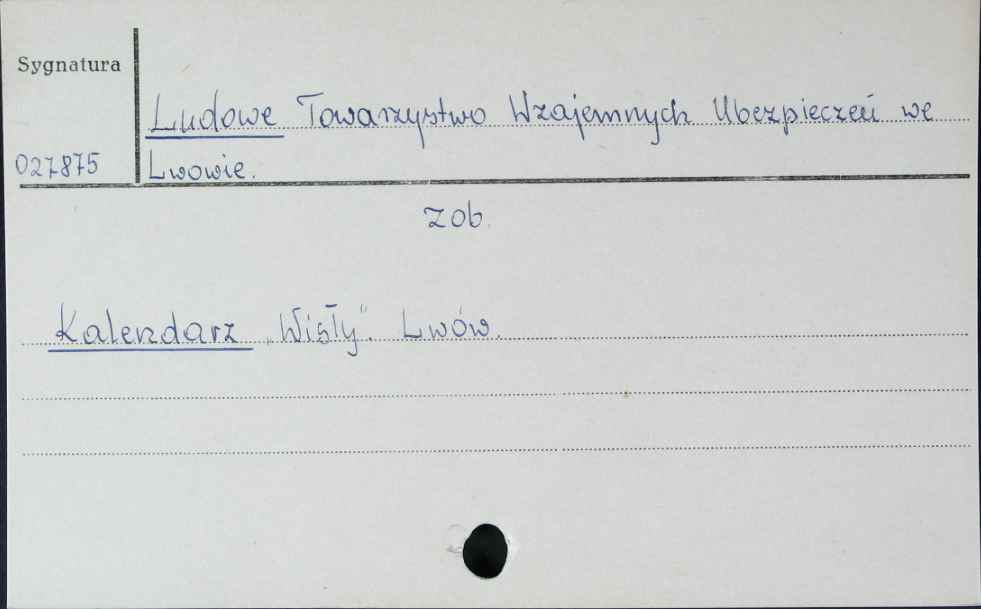 Sygnatura
Ludowe Towarzystwo Wzajemnych Ubezpieczeń we
027875 Lwowie.
zob.
Kalendarz „Wisły”. Lwów.